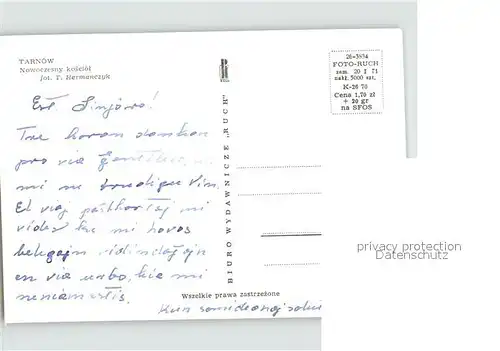 TARNÓW
Nowoczesny kościół
fot. T. Hermańczyk
26-3934
FOTO-RUCH
zam. 20 I 71
nakł. 5000 szt.
K-26 70
Cena 1,70 zł
+ 20 gr
na SFOS
BIURO WYDAWNICZE „RUCH”
Est. Sinjoro!
Tre koran dankon
pro via
mi ne Vin.
El viaj poŝtkartoj mi
vidas ke mi havos
belegajn vidindaĵojn
en via urbo, kie mi
neniam estis.
Kun samideanoj
Wszelkie prawa zastrzeżone
privacy protection
Datenschutz